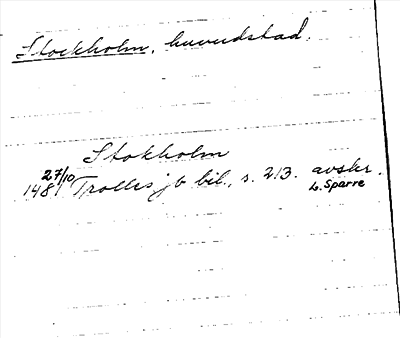 Stockholm, huvudstad.
Stokholm
27/10
148 Trolles jb bil., s. 213. avskr.
L. Sparre